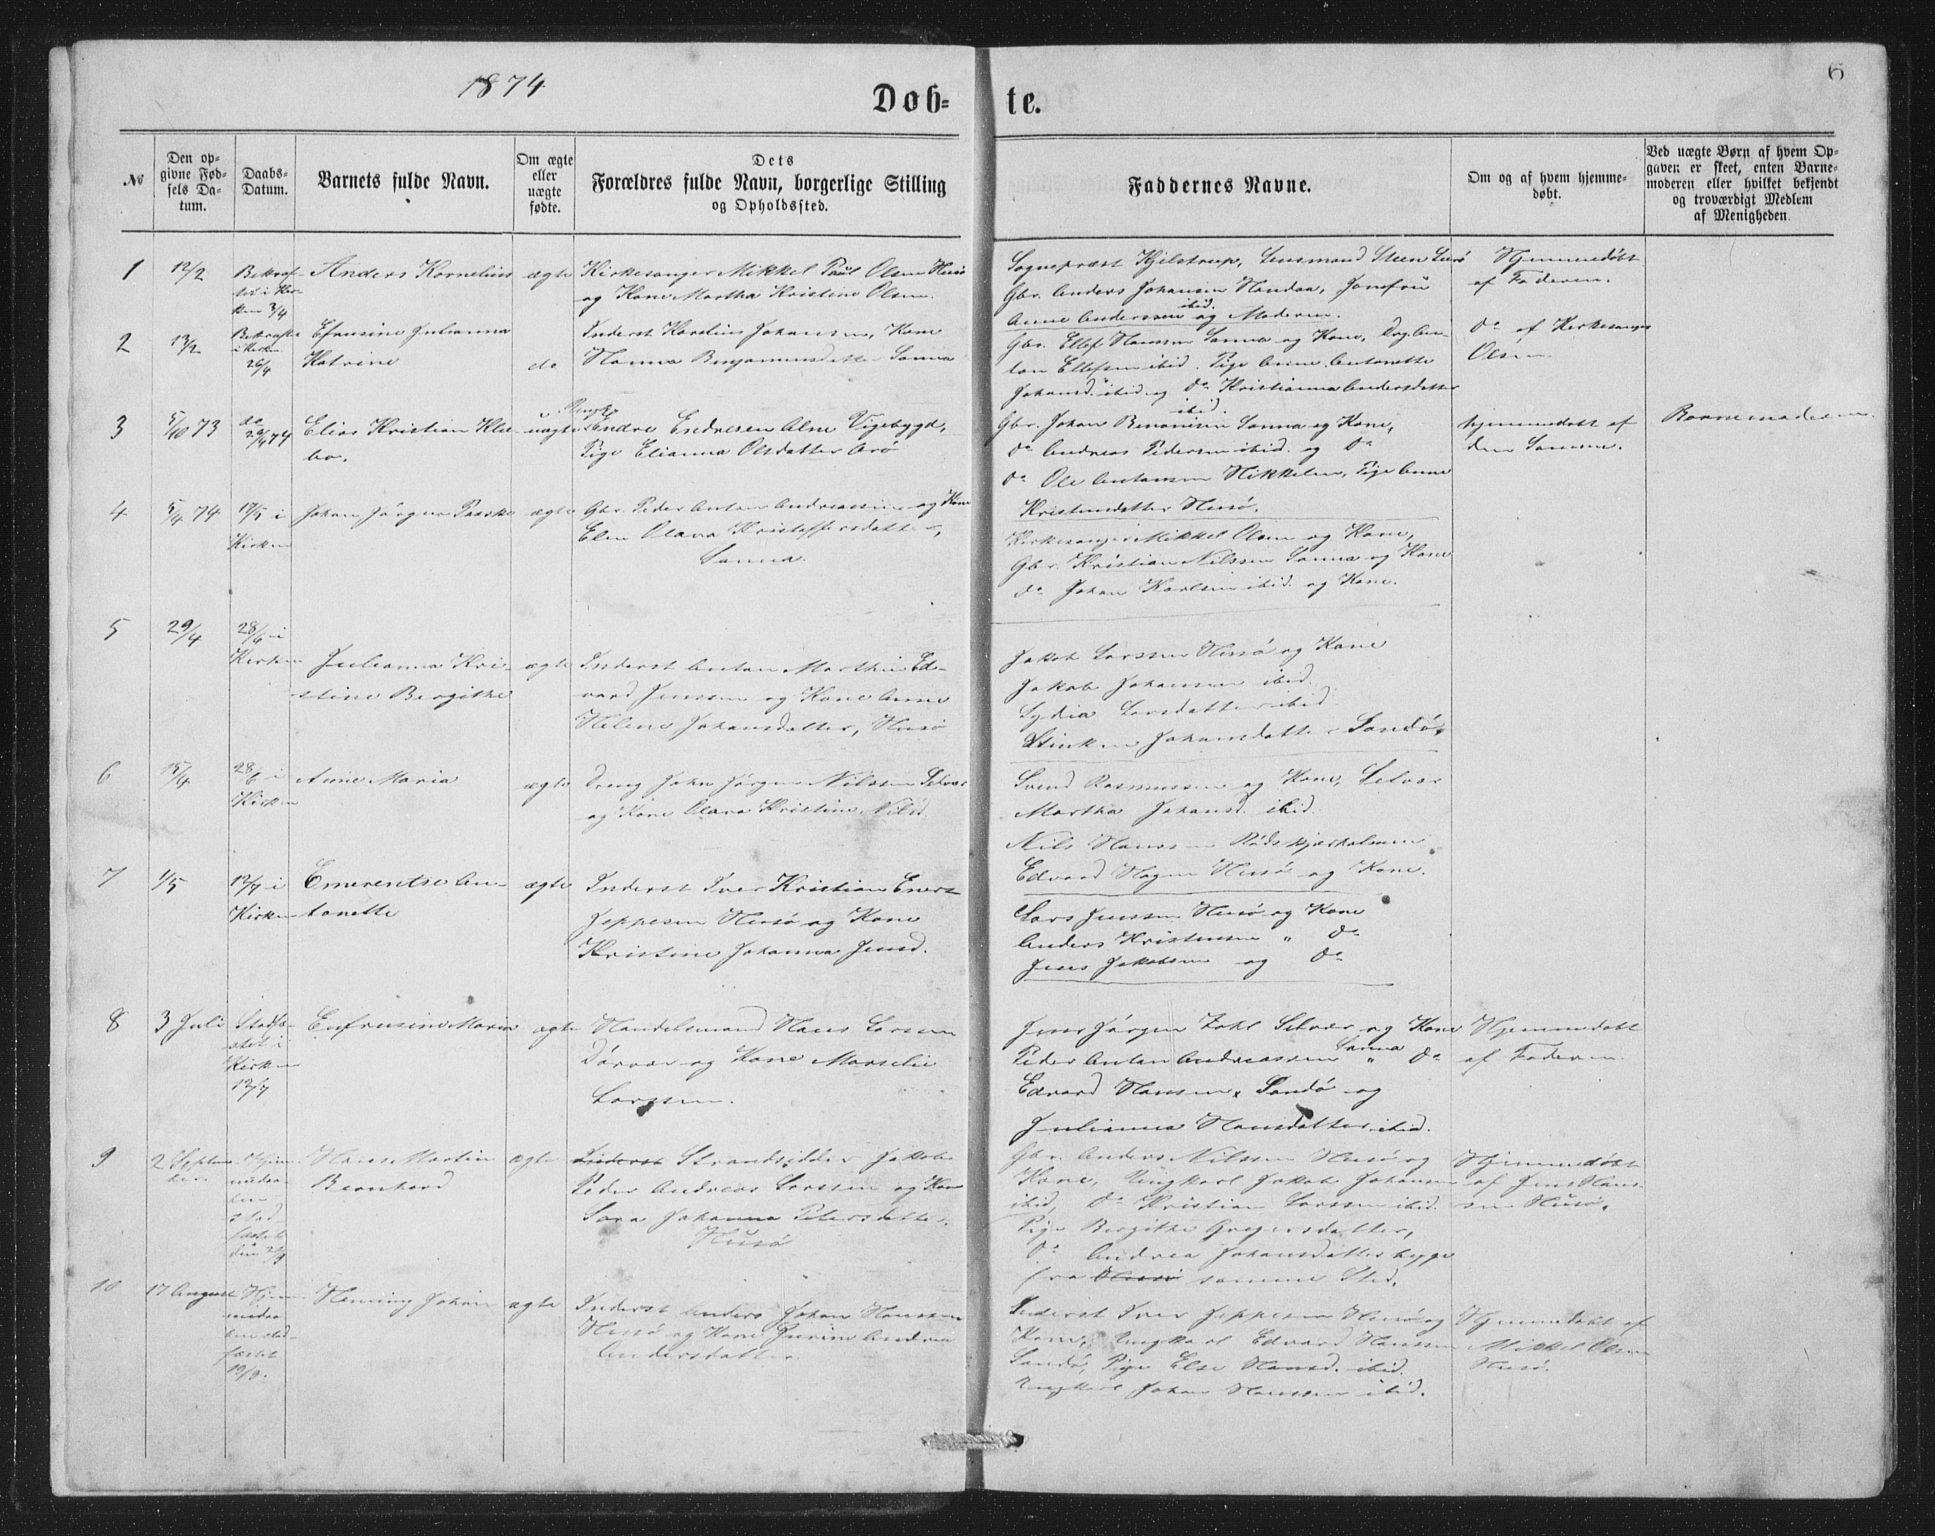 1874
6
Døb-
te.
No
Den op-
givne Fød-
sels Da-
tum.
Daabs-
Datum.
Barnets fulde Navn.
Om ægte
eller
uægte
fødte.
Dets
Forældres fulde Navn, borgerlige Stilling
og Opholdssted.
Faddernes Navne.
Om og af hvem hjemme-
døbt.
Ved uægte Børn af hvem Op-
gaven er skeet, enten Barne-
moderen eller hvilket bekjendt
og troværdigt Medlem
af Menigheden.
1
12/2
Bekræf-
tet i Kir-
ken 3/4
Anders Kornelius
ægte
Kirkesanger Mikkel Paul Olsen Husø
og Kone Martha Kristine Olsen.
Sognepræst Kjelstrup, Lensmand Steen
Gbr. Anders Johansen Jomfru
Anne Anderssen ibid. og Moderen.
Hjemmedøbt
af Faderen.
2
13/2
i Kirken
26/4
Efrusine Julianna
Katrine
do
Inderst Johansen, Kone
Hanna Benjaminsdatter Sanna
Gbr. Ellef Hanssen Sanna og Kone,
Ellefsen ibid. Pige Anne Antonette
Johansd. ibid og do Kristianna Andersdatter
ibid.
do af Kirkesanger
Olsen
3
5/10 73
do
26/4 74
Elias Kristian
uægte
Endre Endresen Alne Vigebygd,
Pige Elianna Olsdatter
Gbr. Johan Benonisen Sanna og Kone,
do Andreas Pedersen ibid. og do
do Ole Antonsen Pige Anne
Kristensdatter Husø.
hjemmedøbt af
den Samme.
Barnemoderen.
4
5/4 74
17/5 i
Kirken
Johan Jørgen
ægte
Gbr. Peder Anton Andreassen og Kone
Elen Olava Kristoffersdatter,
Sanna.
Kirkesanger Mikkel Olsen og Kone,
Gbr. Kristian Nilssen Sanna og Kone
do Johan Karlsen ibid. og Kone.
5
29/4
28/6 i
Kirken
Julianna Kri-
stine Bergithe
ægte
Inderst Anton Marthin Ed-
vard Jenssen og Kone Anne
Helene Johansdatter, Husø
Jakob Larssen Husø og Kone
Jakob Johansen ibid.
Lydia Larsdatter ibid.
Johansdatter Sandø
6
15/4
28/6 i
Kirken
Anne Maria
ægte
John Jørgen Nilssen Selvær
og Kone Olava Kristine Nilsd.
Svend Rasmussen og Kone, Selvær
Martha Johansd. ibid.
Nils Hanssen
Edvard Hagen Husø og Kone.
7
1/5
12/7 i
Kirken
Emerentse An-
tonette
ægte
Inderst Iver Kristian
Jeppesen Husø og Kone
Kristine Johanna Jensd.
Lars Jenssen Husø og Kone
Anders Kristensen " do
Jens Jakobsen og do
8
3 Juli
Stadfæ-
stet i
Kirken
12/7
Enfrusine Maria
ægte
Handelsmand Hans Larsen
Dørvær og Kone Marselie
Larssen.
Jens Jørgen Zahl Selvær og Kone
Peder Antan Andreassen Sanna " do
Edvard Hansen, Sandø og
Julianna Hansdatter ibid.
Hjemmedøbt
af Faderen
9
2 Septem-
ber
Hjem-
medøb-
ben
stad
fæstet
den 21/9
Hans Martin
Bernhard
ægte
Inderst Strandsidder Jakob
Peder Andreas Larssen og Kone
Sara Johanna Petersdatter.
Husø
Gbr. Anders Nilssen Husø og
Kone, Ungkarl Jakob Johansen
ibid, do Kristian Larssen ibid.
Pige Bergithe Gregersdatter,
do Andrea Johansdatter begge
fra Husø samme Sted.
Hjemmedøbt
af Jens Hans-
sen Husø.
10
17 August
Hjem-
medaa-
ben stad-
fæstet
19/9.
Henning Johan
ægte
Inderst Anders Johan Hanssen
Husø og Kone Andrea
Andersdatter
Inderst Iver Jeppesen Husø og
Kone, Ungkarl Edvard Hanssen
Sandø, Pige Else Hansd. ibid.
Ungkarl Johan Hanssen ibid.
Hjemmedøbt af
Mikkel Olsen
Husø.